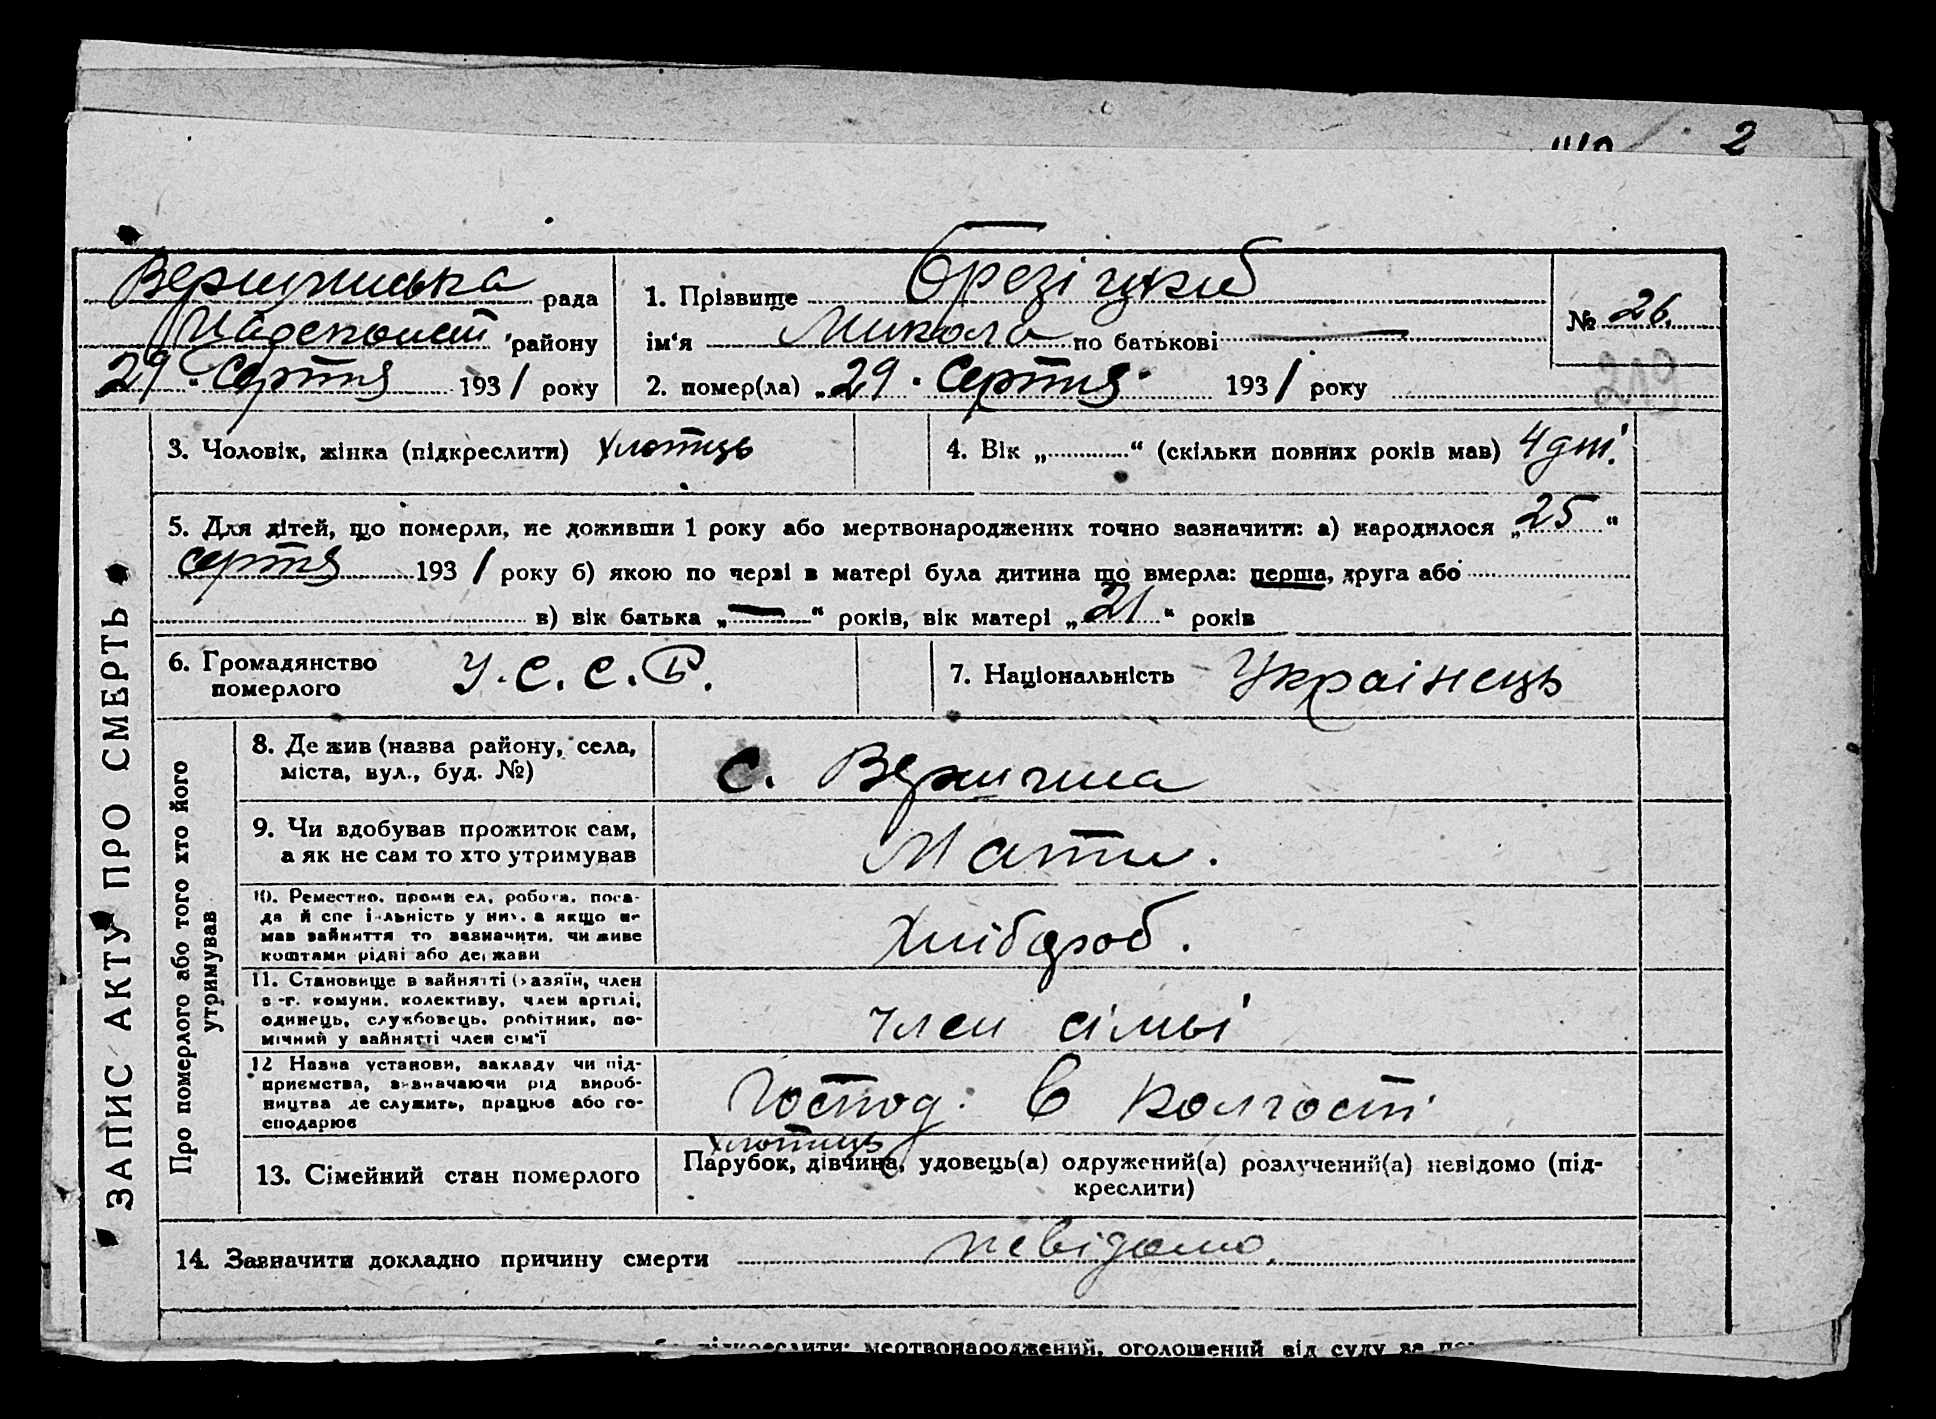 2
рада
району
29 " Серпня 1931 року
1. Прізвище
ім'я Микола по батькові —
2. помер(ла) „29" Серпня 1931 року
№ 26
219
3. Чоловік, жінка (підкреслити) хлопець
4. Вік „ " (скільки повних років мав) 4 дні.
5. Для дітей, що померли, не доживши 1 року або мертвонароджених точно зазначити: а) народилося „25"
серпня 1931 року б) якою по черзі в матері була дитина що вмерла: перша, друга або
в) вік батька „—" років, вік матері „21" років
6. Громадянство
померлого
У.С.С.Р.
7. Національність Українець
ЗАПИС АКТУ ПРО СМЕРТЬ
Про померлого або того хто його
утримував
8. Де жив (назва району, села,
міста, вул., буд. №)
с. Вершина
9. Чи вдобував прожиток сам,
а як не сам то хто утримував
Мати.
10. Реместно, промисел, робота, поса-
да й спеціяльність у них, а якщо не
мав зайняття то зазначити, чи живе
коштами рідні або держави
Хлібороб.
11. Становище в зайнятті (хазяїн, член
с.-г. комуни, колективу, член артілі,
одинець, службовець, робітник, по-
мічний у зайнятті член сім'ї
член сімьі
12 Назва установи, закладу чи під-
приємства, зазначаючи рід вироб-
ництва де служить, працює або го-
сподарює
Господ. в колгоспі
13. Сімейний стан померлого
хлопець
Парубок, дівчина, удовець(а) одружений(а) розлучений(а) невідомо (під-
креслити)
14. Зазначити докладно причину смерти невідомо.
підкреслити: мертвонароджений, оголошений від суду за